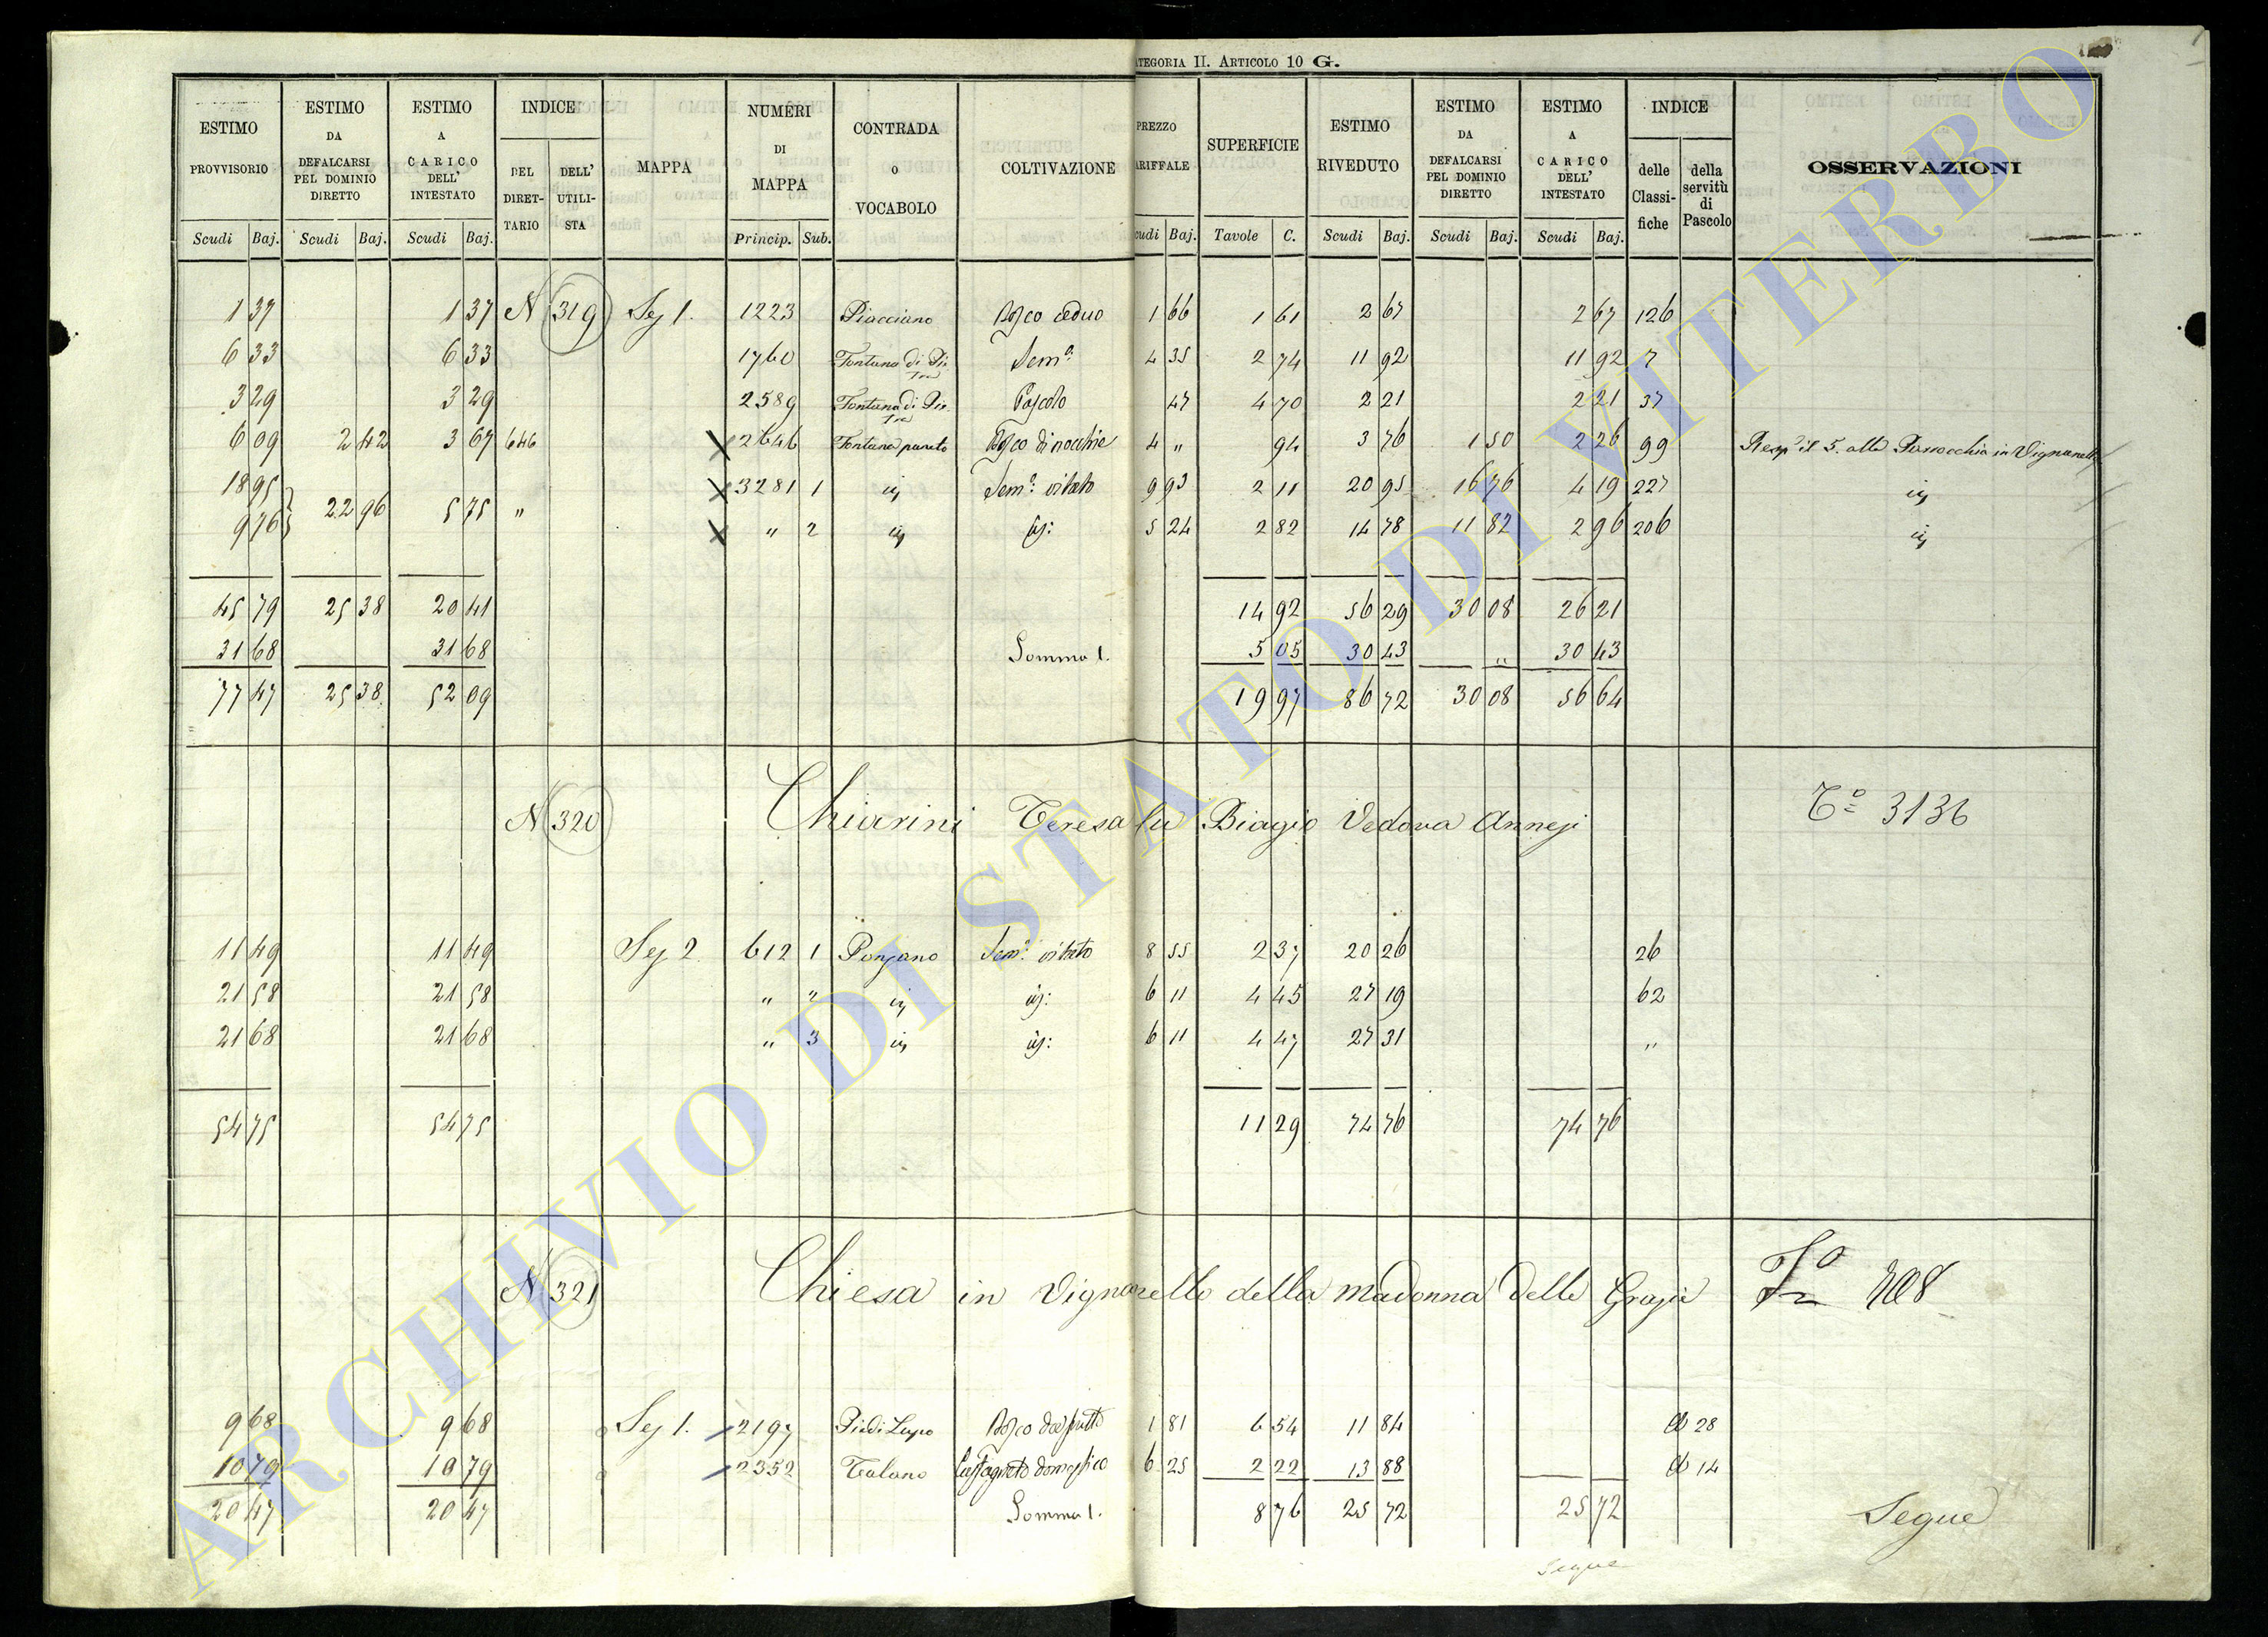 ATEGORIA II. ARTICOLO 10 G.
ESTIMO PROVVISORIO | ESTIMO DA DEFALCARSI PEL DOMINIO DIRETTO | ESTIMO A CARICO DELL' INTESTATO | INDICE | MAPPA | NUMERI DI MAPPA | CONTRADA O VOCABOLO | COLTIVAZIONE | PREZZO ARIFFALE | SUPERFICIE | ESTIMO RIVEDUTO | ESTIMO DA DEFALCARSI PEL DOMINIO DIRETTO | ESTIMO A CARICO DELL' INTESTATO | INDICE | OSSERVAZIONI
DEL DIRET-TARIO | DELL' UTILI-STA | delle Classi-fiche | della servitù di Pascolo
Scudi Baj. | Scudi Baj. | Scudi Baj. | Princip. Sub. | cudi Baj. | Tavole C. | Scudi Baj. | Scudi Baj. | Scudi Baj.
1 37 | 1 37 | N 319 | Sez 1. | 1223 | Piacciano | Bosco ceduo | 1 66 | 1 61 | 2 67 | 2 67 | 126
6 33 | 6 33 | 1760 | Fontana di | Sem.o | 4 35 | 2 74 | 11 92 | 11 92 | 7
3 29 | 3 29 | 2589 | Fontana di | Pascolo | 47 | 4 70 | 2 21 | 2 21 | 37
6 09 | 2 42 | 3 67 | 646 | 2646 | Fontana | Bosco di nocchie | 4 " | 94 | 3 76 | 1 50 | 2 26 | 99 | il 5. alla Parrocchia in Vignanello
18 95 | 3281 1 | id | Sem.o vitato | 9 93 | 2 11 | 20 95 | 16 76 | 4 19 | 227 | id
9 76 | 22 96 | 5 75 | " | " 2 | id | id: | 5 24 | 2 82 | 14 78 | 11 82 | 2 96 | 206 | id
45 79 | 25 38 | 20 41 | 14 92 | 56 29 | 30 08 | 26 21
31 68 | 31 68 | Somma 1. | 5 05 | 30 43 | " | 30 43
77 47 | 25 38 | 52 09 | 19 97 | 86 72 | 30 08 | 56 64
N 320 Chiarini Teresa fu Biagio Vedova Annesi To 3136
11 49 | 11 49 | Sez 2. | 612 1 | Ponzano | Sem.o vitato | 8 55 | 2 37 | 20 26 | 26
21 58 | 21 58 | " " | id | id: | 6 11 | 4 45 | 27 19 | 62
21 68 | 21 68 | " 3 | id | id: | 6 11 | 4 47 | 27 31 | "
54 75 | 54 75 | 11 29 | 74 76 | 74 76
N 321 Chiesa in Vignanello della madonna delle Grazie
9 68 | 9 68 | Sez 1. | 2197 | Piedi Lupo | Bosco da frutto | 1 81 | 6 54 | 11 84 | 28
10 79 | 10 79 | 2352 | Talano | Castagneto domestico | 6 25 | 2 22 | 13 88 | 14
20 47 | 20 47 | Somma 1. | 8 76 | 25 72 | 25 72 | Segue
Segue
ARCHIVIO DI STATO DI VITERBO